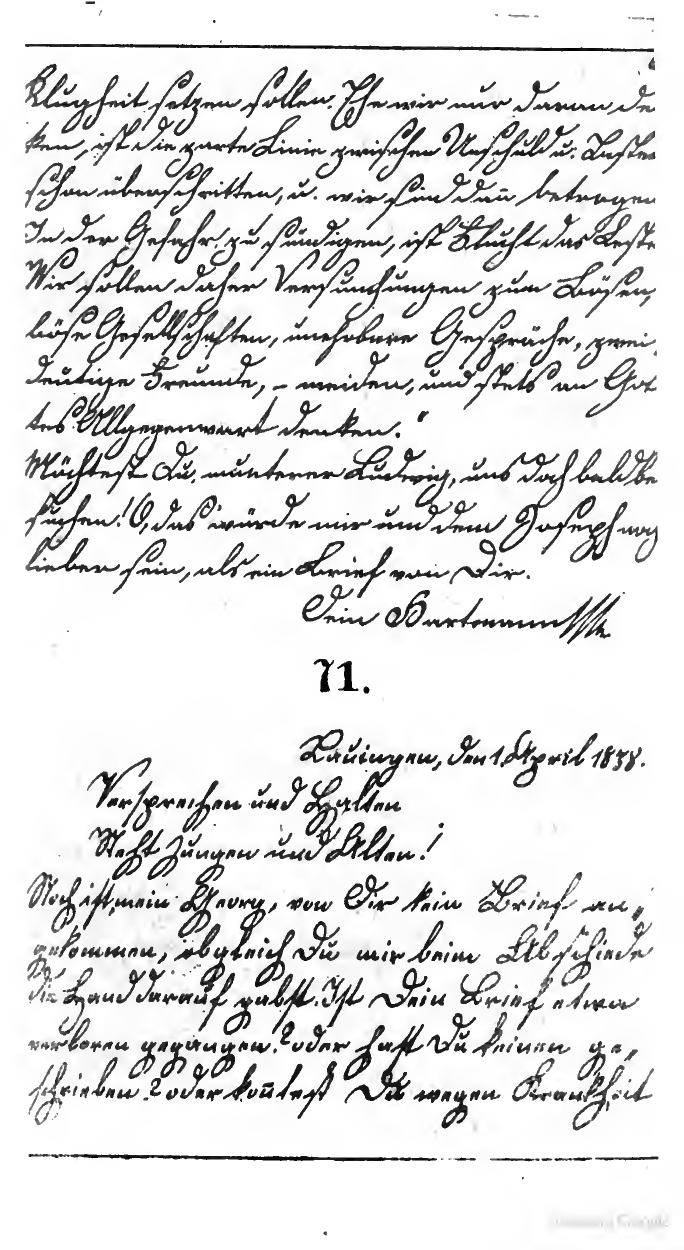 Klugheit setzen sollen. Ehe wir nur daran de
ken, ist die zarte Linie zwischen Unschuld u. Laster
schon überschritten, u. wir sind dan̄ betrogen
In der Gefahr zu sündigen, ist Flucht das Beste
Wir sollen daher Versuchungen zum Bösen,
böse Gesellschaften, unehrbare Gespräche, zwei
deutige Freunde, – meiden, und stets an Got
tes Allgegenwart denken."
Möchtest Du, munterer Ludwig, uns doch bald be
suchen! O, das würde mir und dem Joseph noch
lieber sein, als ein Brief von Dir.
Dein Hartmann
71.
Lauingen, den 1. April 1838.
Versprechen und Halten
Steht Jungen und Alten!
Noch ist, mein Georg, von Dir kein Brief an„
gekommen, obgleich Du mir beim Abschiede
die Hand darauf gabst. Ist Dein Brief etwa
verloren gegangen? oder hast Du keinen ge„
schrieben? oder kon̄test Du wegen Krankheit